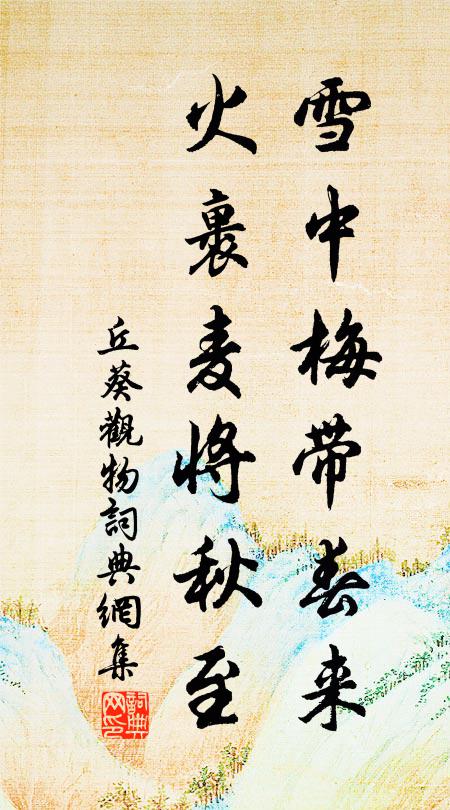 雪中梅带春来
火裹麦将秋至
丘葵觀物詞典網集
詞典网印